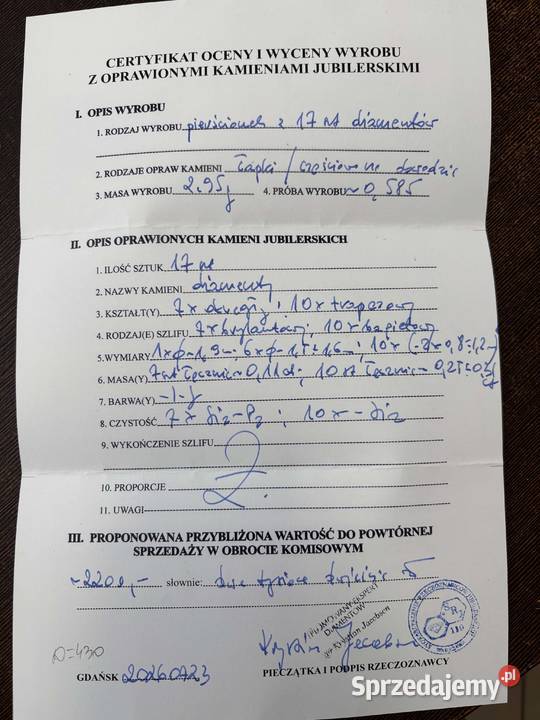 CERTYFIKAT OCENY I WYCENY WYROBU
Z OPRAWIONYMI KAMIENIAMI JUBILERSKIMI
I. OPIS WYROBU
1. RODZAJ WYROBU pierścionek z 17 szt diamentów
2. RODZAJE OPRAW KAMIENI Łapki / częściowo na
3. MASA WYROBU 2,95g 4. PRÓBA WYROBU ~0,585
II. OPIS OPRAWIONYCH KAMIENI JUBILERSKICH
1. ILOŚĆ SZTUK 17 szt
2. NAZWY KAMIENI diamenty
3. KSZTAŁT(Y) 7x okrągły; 10x trapezowy
4. RODZAJ(E) SZLIFU 7x brylantowy; 10x bagietowy
5. WYMIARY 1xφ~1,9m; 6xφ~1,5÷1,6m; 10x
6. MASA(Y) 7szt łącznie ~0,11ct; 10 szt łącznie ~
7. BARWA(Y) ~I-J
8. CZYSTOŚĆ 7x Si2-P2; 10x ~Si2
9. WYKOŃCZENIE SZLIFU
10. PROPORCJE
11. UWAGI
III. PROPONOWANA PRZYBLIŻONA WARTOŚĆ DO POWTÓRNEJ
SPRZEDAŻY W OBROCIE KOMISOWYM
~2200,- słownie: dwa tysiące dwieście zł
DYPLOMOWANY EKSPERT
DIAMENTÓW
Krystian Jacobsen
D=430
GDAŃSK 20260723
PIECZĄTKA I PODPIS RZECZOZNAWCY
Sprzedajemy.pl